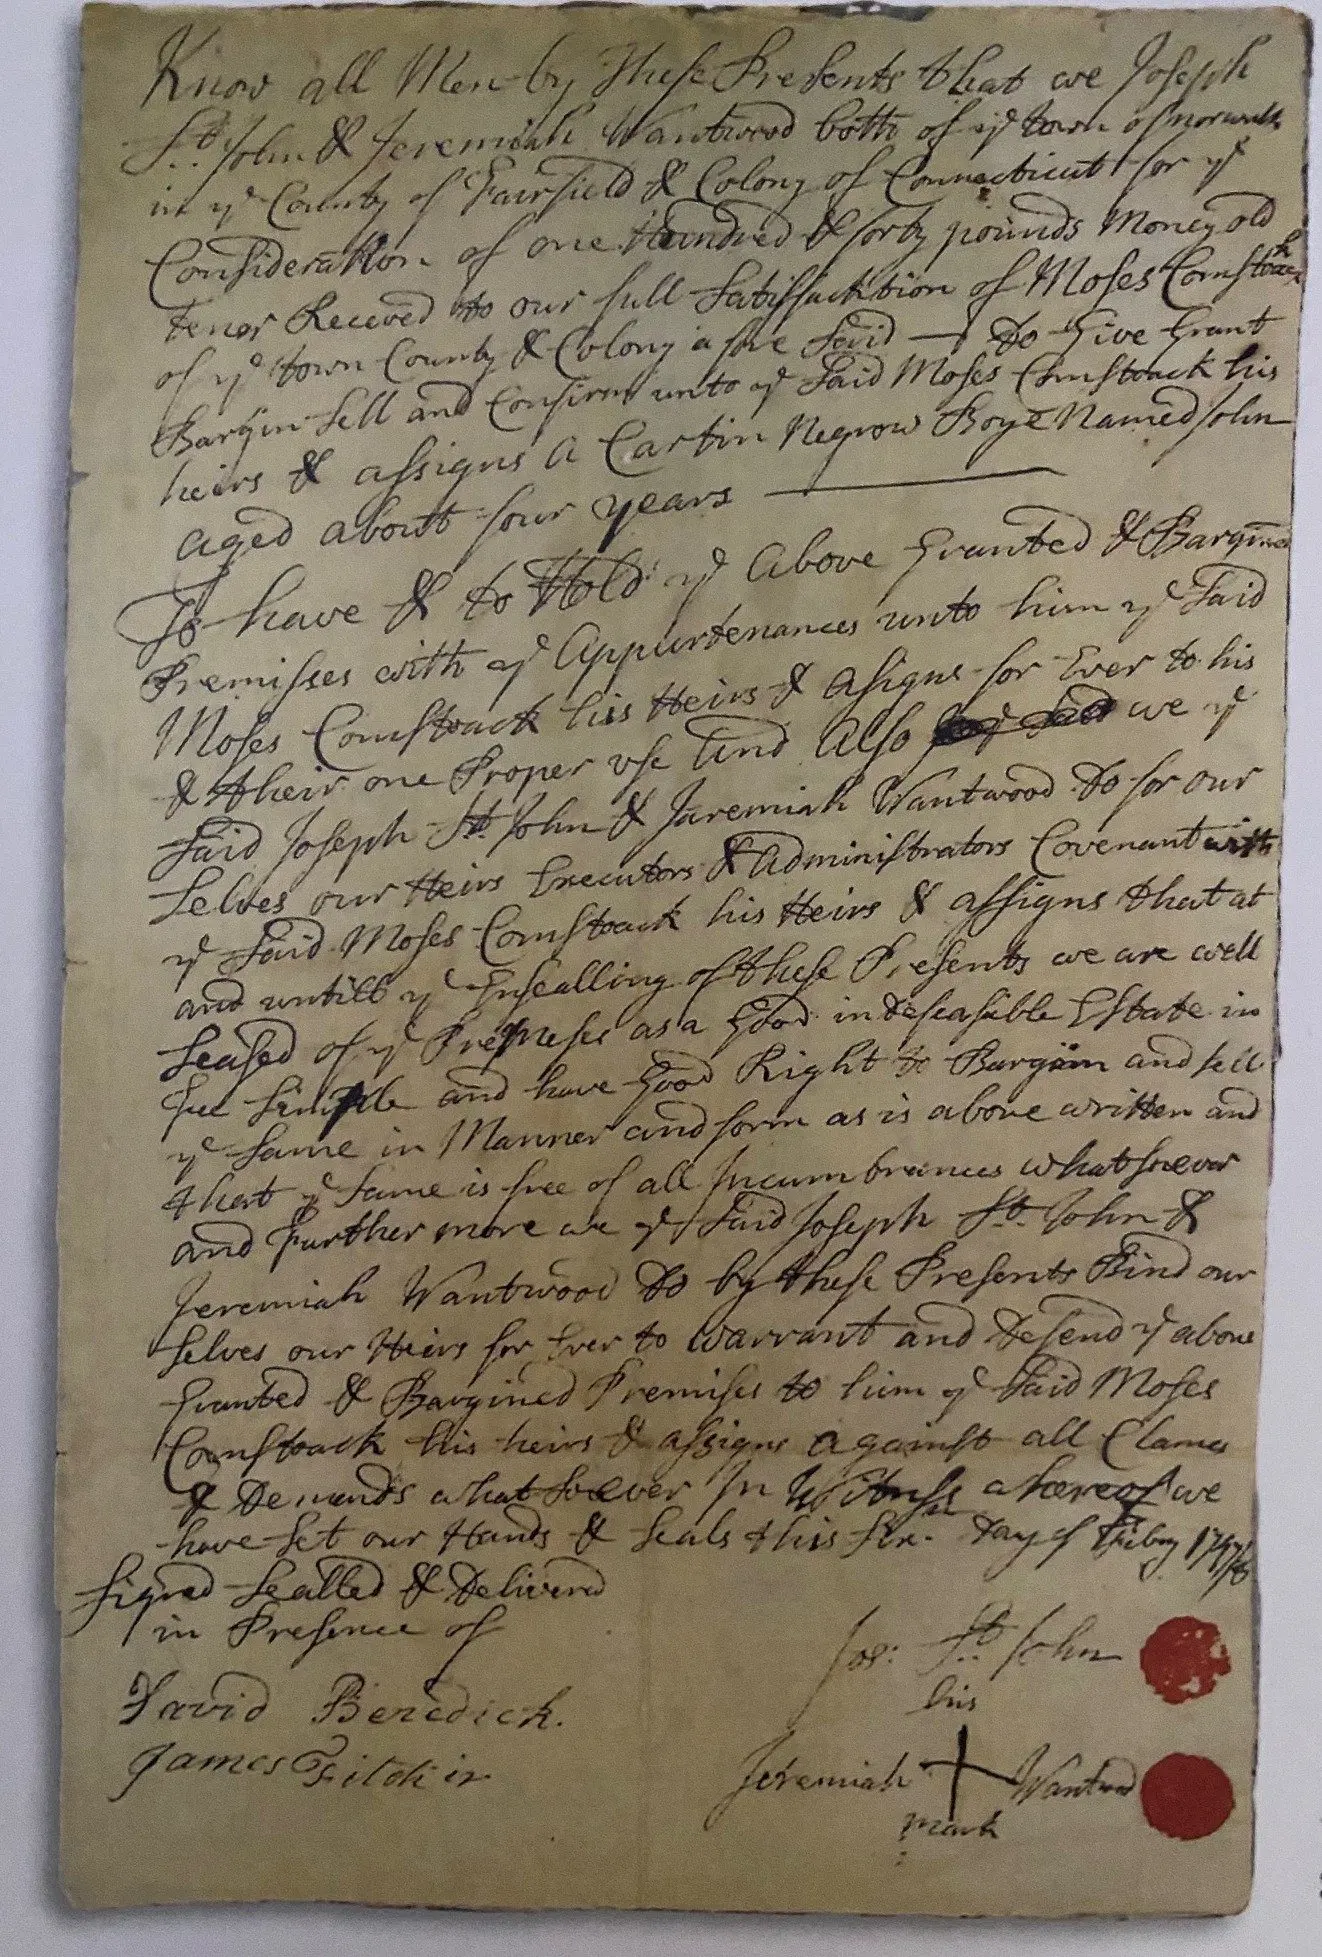 Know all Men by These Presents that we Joseph
St. John & Jeremiah Wantwood both of ye town of norwalk
in ye County of Fairfield & Colony of Connecticut for ye
Consideration of one Hundred & forty pounds Money old
tenor Receved to our full Satisfacktion of Moses Comstock
of ye town County & Colony a fore Said — Do Give Grant
Bargin Sell and Confirm unto ye Said Moses Comstock his
heirs & assigns a Cartin Negrow Boye Named John
aged about four years —
To have & to Hold ye above Granted & Bargined
Premisses with ye Appurtenances unto him ye Said
Moses Comstock his Heirs & asigns for Ever to his
& their one Proper use And Also we ye
Said Joseph St. John & Jaremiah Wantwood Do for our
Selves our Heirs Executors & Administrators Covenant with
ye Said Moses Comstock his Heirs & assigns that at
and untill ye Ensealling of these Presents we are well
Seased of ye Premeses as a Good indefeasible Estate in
Fee Simple and have Good Right to Bargain and sell
ye Same in Manner and form as is above written and
that ye Same is free of all Incumbrances whatsoever
and Further more we ye Said Joseph St. John &
Jeremiah Wantwood Do by these Presents Bind our
selves our Heirs for Ever to warrant and Defend ye above
Granted & Bargined Premises to him ye Said Moses
Comstock his heirs & assigns against all Clames
& Demands whatsoever In Witness whereof we
have Set our Hands & Seals this Day of
Signed Sealled & Delivered
in Presence of
Jos: St. John
his
David Beredick.
James
Jeremiah + Wantwood
mark